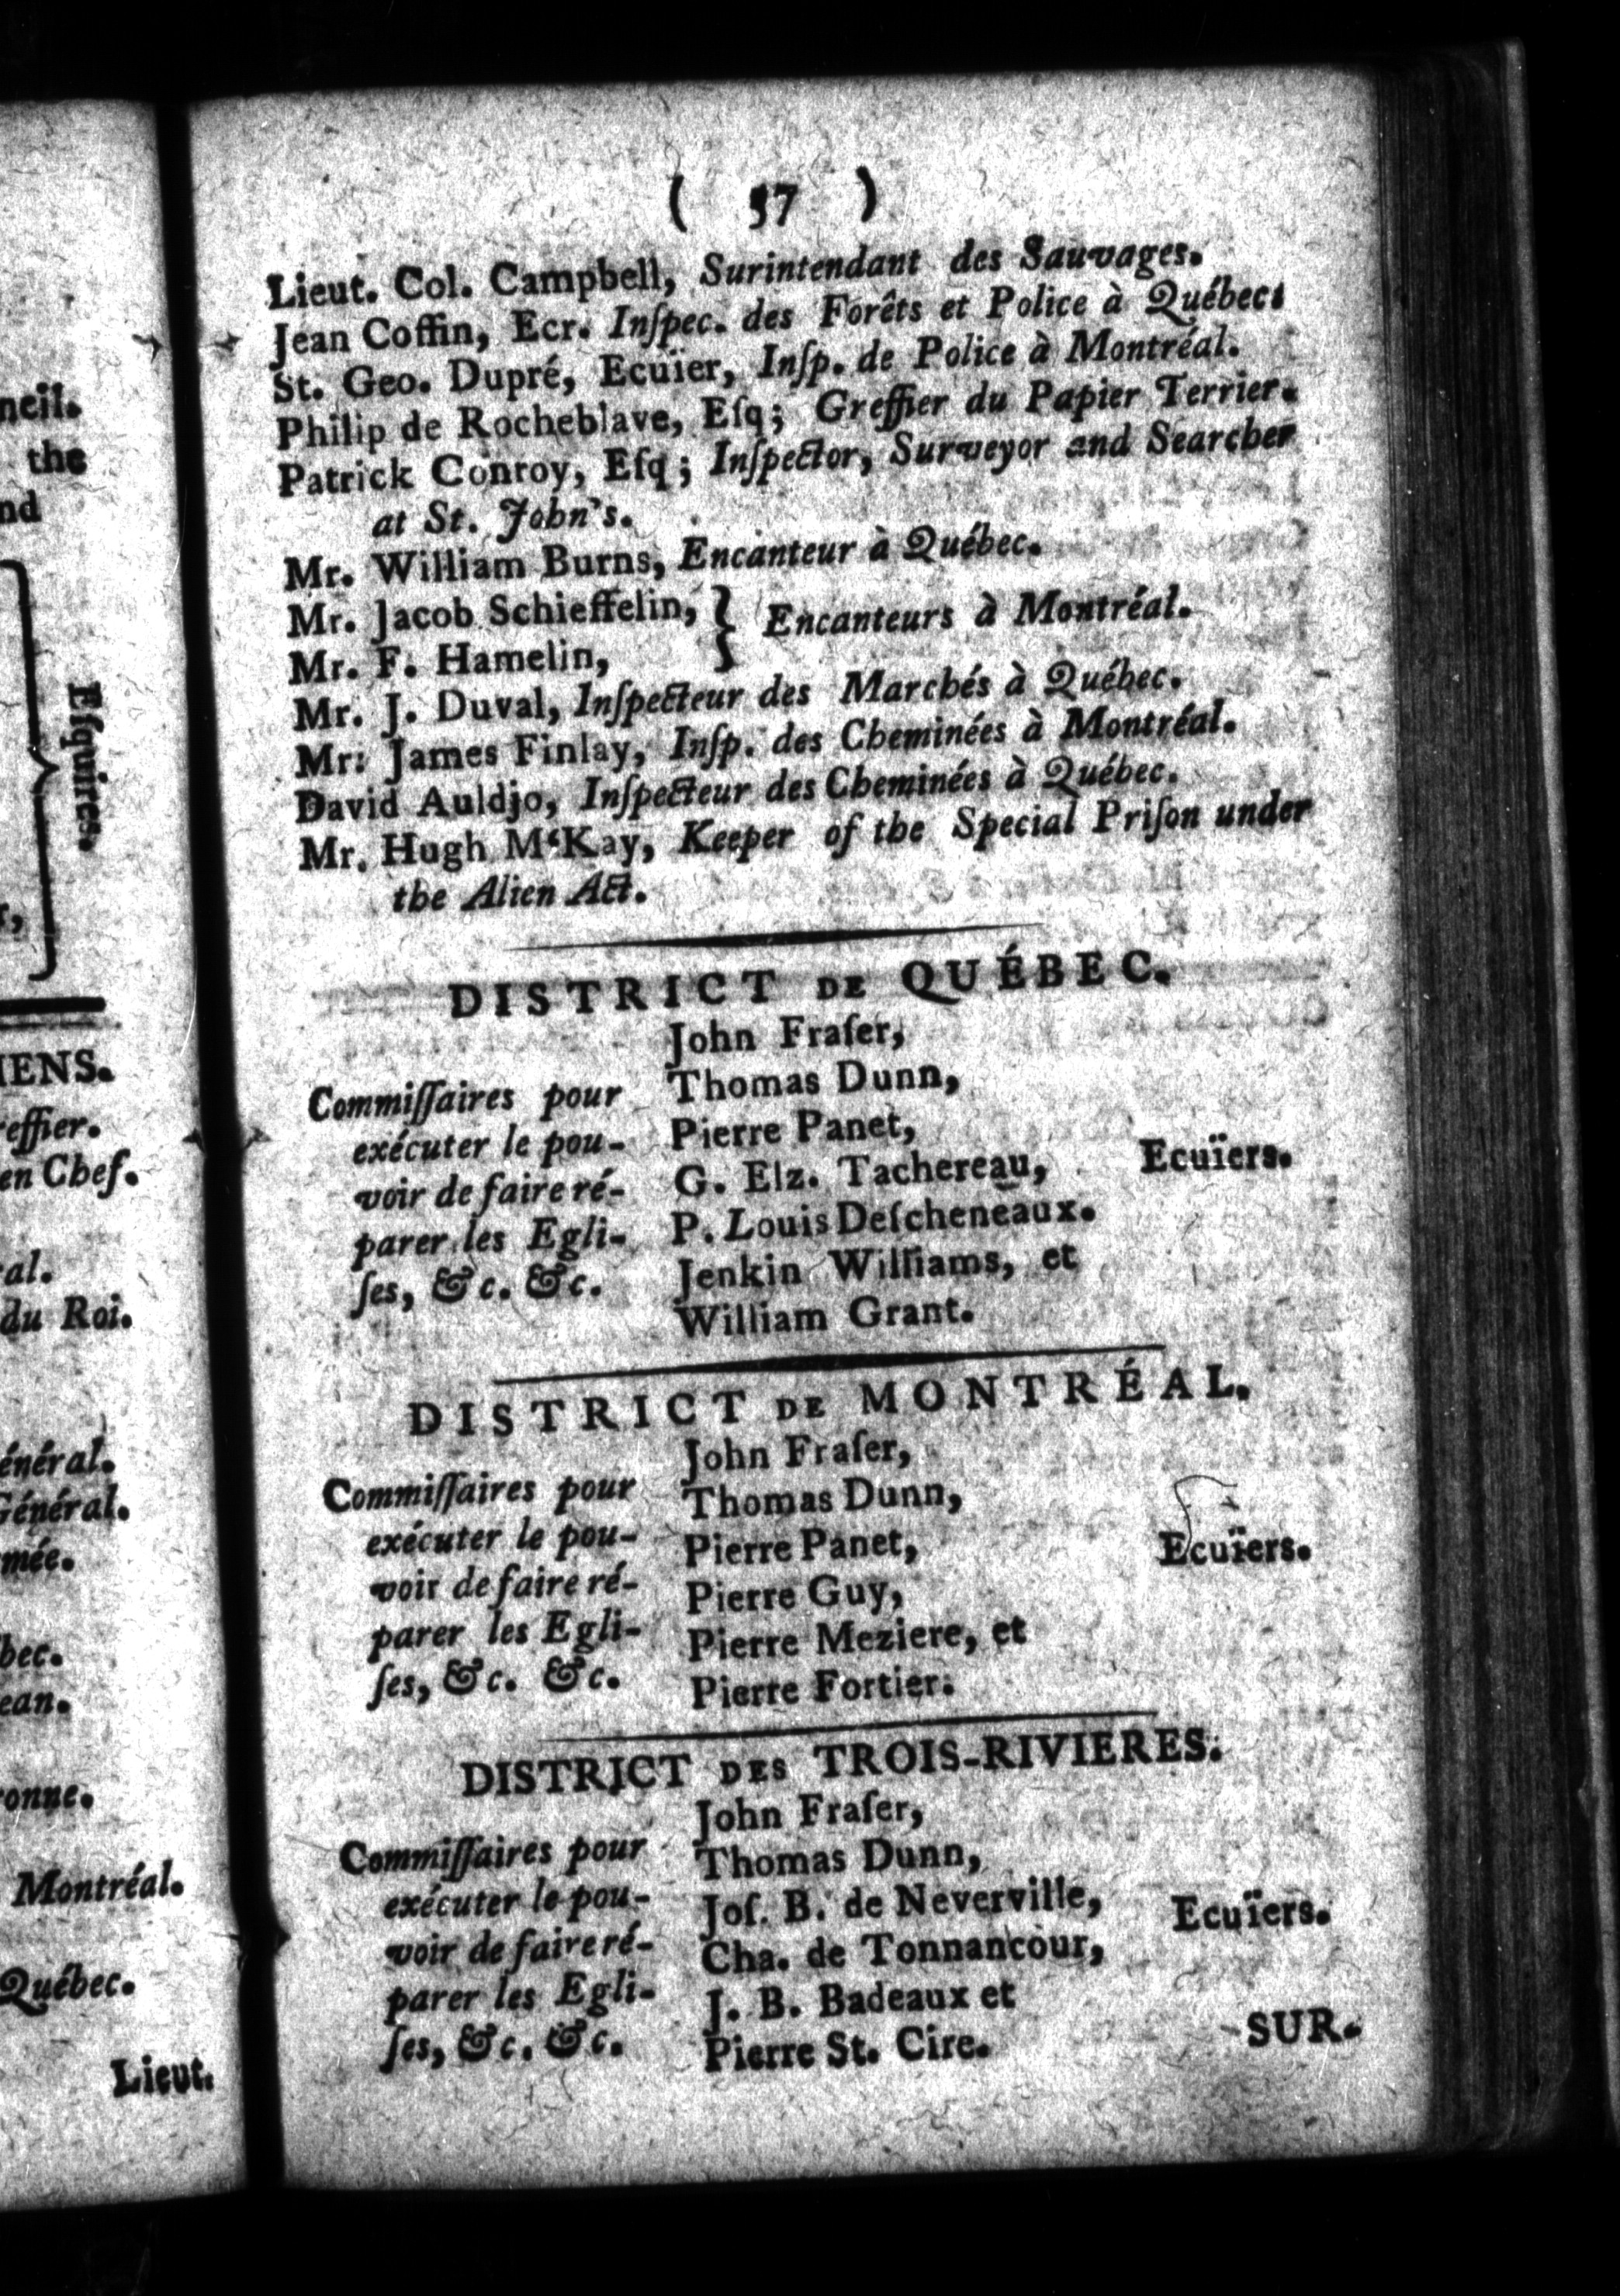 neil.
the
nd
Esquires.
r,
IENS.
reffier.
en Chef.
al.
du Roi.
énéral.
Général.
mée.
bec.
ean.
ronne.
Montréal.
Québec.
Lieut.
( 57 )
Lieut. Col. Campbell, Surintendant des Sauvages.
Jean Coffin, Ecr. Inſpec. des Forêts et Police à Québec.
St. Geo. Dupré, Ecuïer, Inſp. de Police à Montréal.
Philip de Rocheblave, Eſq; Greffier du Papier Terrier.
Patrick Conroy, Eſq; Inſpector, Surveyor and Searcher
at St. John's.
Mr. William Burns, Encanteur à Québec.
Mr. Jacob Schieffelin, } Encanteurs à Montréal.
Mr. F. Hamelin,
Mr. J. Duval, Inſpecteur des Marchés à Québec.
Mr: James Finlay, Inſp. des Cheminées à Montréal.
David Auldjo, Inſpecteur des Cheminées à Québec.
Mr. Hugh McKay, Keeper of the Special Priſon under
the Alien Act.
DISTRICT DE QUÉBEC.
John Fraſer,
Commiſſaires pour Thomas Dunn,
exécuter le pou- Pierre Panet,
voir de faire ré- G. Elz. Tachereau, Ecuïers.
parer les Egli- P. Louis Deſcheneaux.
ſes, &c. &c. Jenkin Williams, et
William Grant.
DISTRICT DE MONTRÉAL.
John Fraſer,
Commiſſaires pour Thomas Dunn,
exécuter le pou- Pierre Panet, Ecuïers.
voir de faire ré- Pierre Guy,
parer les Egli- Pierre Meziere, et
ſes, &c. &c. Pierre Fortier.
DISTRICT DES TROIS-RIVIERES.
John Fraſer,
Commiſſaires pour Thomas Dunn,
exécuter le pou- Joſ. B. de Neverville, Ecuïers.
voir de faire ré- Cha. de Tonnancour,
parer les Egli- J. B. Badeaux et
ſes, &c. &c. Pierre St. Cire.
SUR-